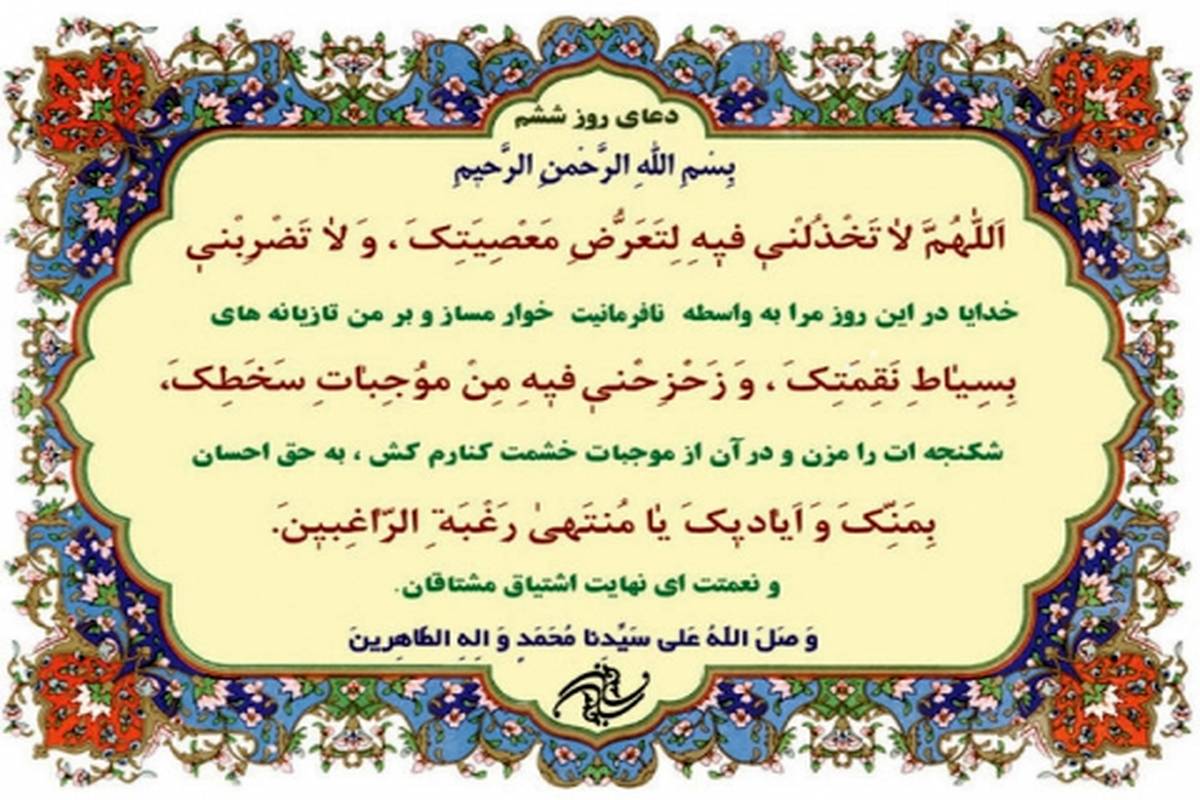 دعای روز ششم
بِسْمِ اللّٰهِ الرَّحْمنِ الرَّحیٖمِ
اَللّٰهُمَّ لاٰ تَخْذُلْنیٖ فیٖهِ لِتَعَرُّضِ مَعْصِیَتِکَ ، وَ لاٰ تَضْرِبْنیٖ
خدایا در این روز مرا به واسطه نافرمانیت خوار مساز و بر من تازیانه های
بِسِیٰاطِ نَقِمَتِکَ ، وَ زَحْزِحْنیٖ فیٖهِ مِنْ موُجِبٰاتِ سَخَطِکَ،
شکنجه ات را مزن و در آن از موجبات خشمت کنارم کش ، به حق احسان
بِمَنِّکَ وَ اَیٰادیٖکَ یٰا مُنتَهیٰ رَغْبَةِ الرّٰاغِبیٖنَ.
و نعمتت ای نهایت اشتیاق مشتاقان.
وَ صَلَ اللّهُ عَلی سَیِّدِنا مُحَمَدٍ وَ الِهِ الطّاهِرینَ